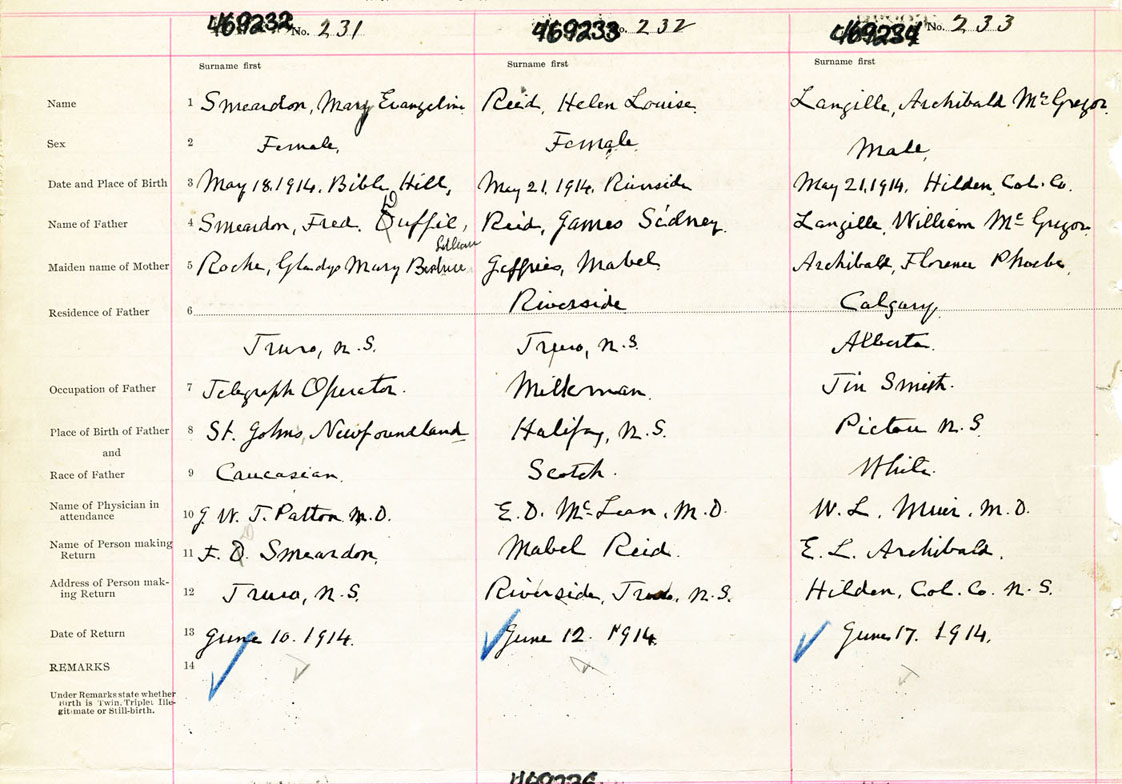 469232 No. 231 469233 No. 232 469234 No. 233
Surname first Surname first Surname first
Name 1 Smeardon, Mary Evangeline Reid, Helen Louise Langille, Archibald McGregor
Sex 2 Female. Female. Male.
Date and Place of Birth 3 May 18. 1914. Bible Hill, May 21, 1914. Riverside May 21, 1914. Hilden, Col. Co.
Name of Father 4 Smeardon, Fred. Reid, James Sidney. Langille, William McGregor
Lillian
Maiden name of Mother 5 Roche, Gladys Mary Jeffries, Mabel Archibald, Florence Phoebe.
Residence of Father 6 Riverside Calgary
Truro, N.S. Truro, N.S. Alberta.
Occupation of Father 7 Telegraph Operator. Milkman. Tin Smith.
Place of Birth of Father 8 St. Johns, Newfoundland Halifax, N.S. Pictou N.S.
and
Race of Father 9 Caucasian. Scotch. White.
Name of Physician in
attendance 10 J. W. T. Patton M.D. E. D. McLean, M.D. W. L. Muir, M.D.
Name of Person making
Return 11 F. D. Smeardon, Mabel Reid. E. L. Archibald.
Address of Person mak-
ing Return 12 Truro, N.S. Riverside, Truro, N.S. Hilden, Col. Co. N.S.
Date of Return 13 June 10. 1914. June 12. 1914. June 17. 1914.
REMARKS 14
Under Remarks state whether
Birth is Twin, Triplet Ille-
gitimate or Still-birth.